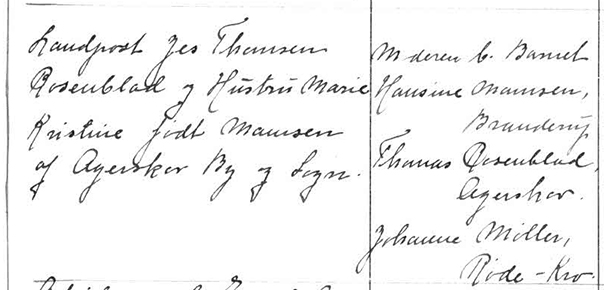 Landpost Jes Thomsen
Rosenblad og Hustru Marie
Kristine født Mamsen
af Agerskov By og Sogn.
Moderen b. Barnet
Hansine Mamsen,
Branderup
Thomas Rosenblad,
Agerskov.
Johanne Möller,
Röde-Kro.